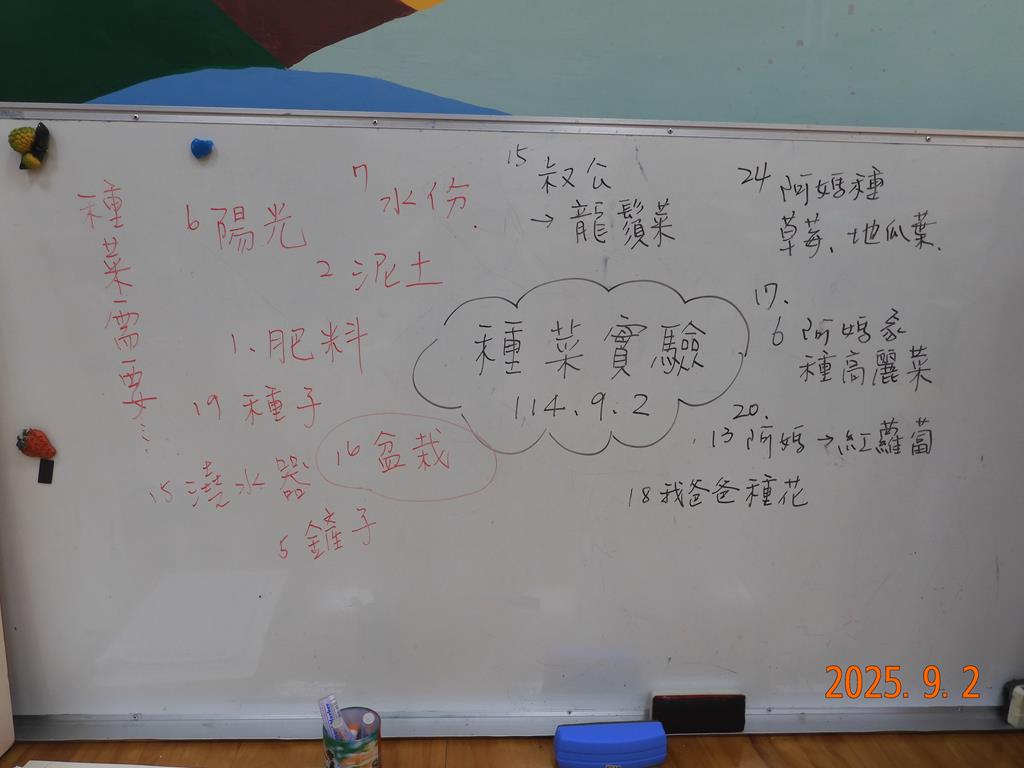 種菜需要…
6 陽光
7 水份
2 泥土
1. 肥料
19 種子
16 盆栽
15 澆水器
5 鏟子
種菜實驗
114.9.2
15 叔公
→ 龍鬚菜
24 阿媽種
草莓、地瓜葉.
17.
6 阿媽家
種高麗菜
20.
13 阿媽→紅蘿蔔
18 我爸爸種花
2025. 9. 2